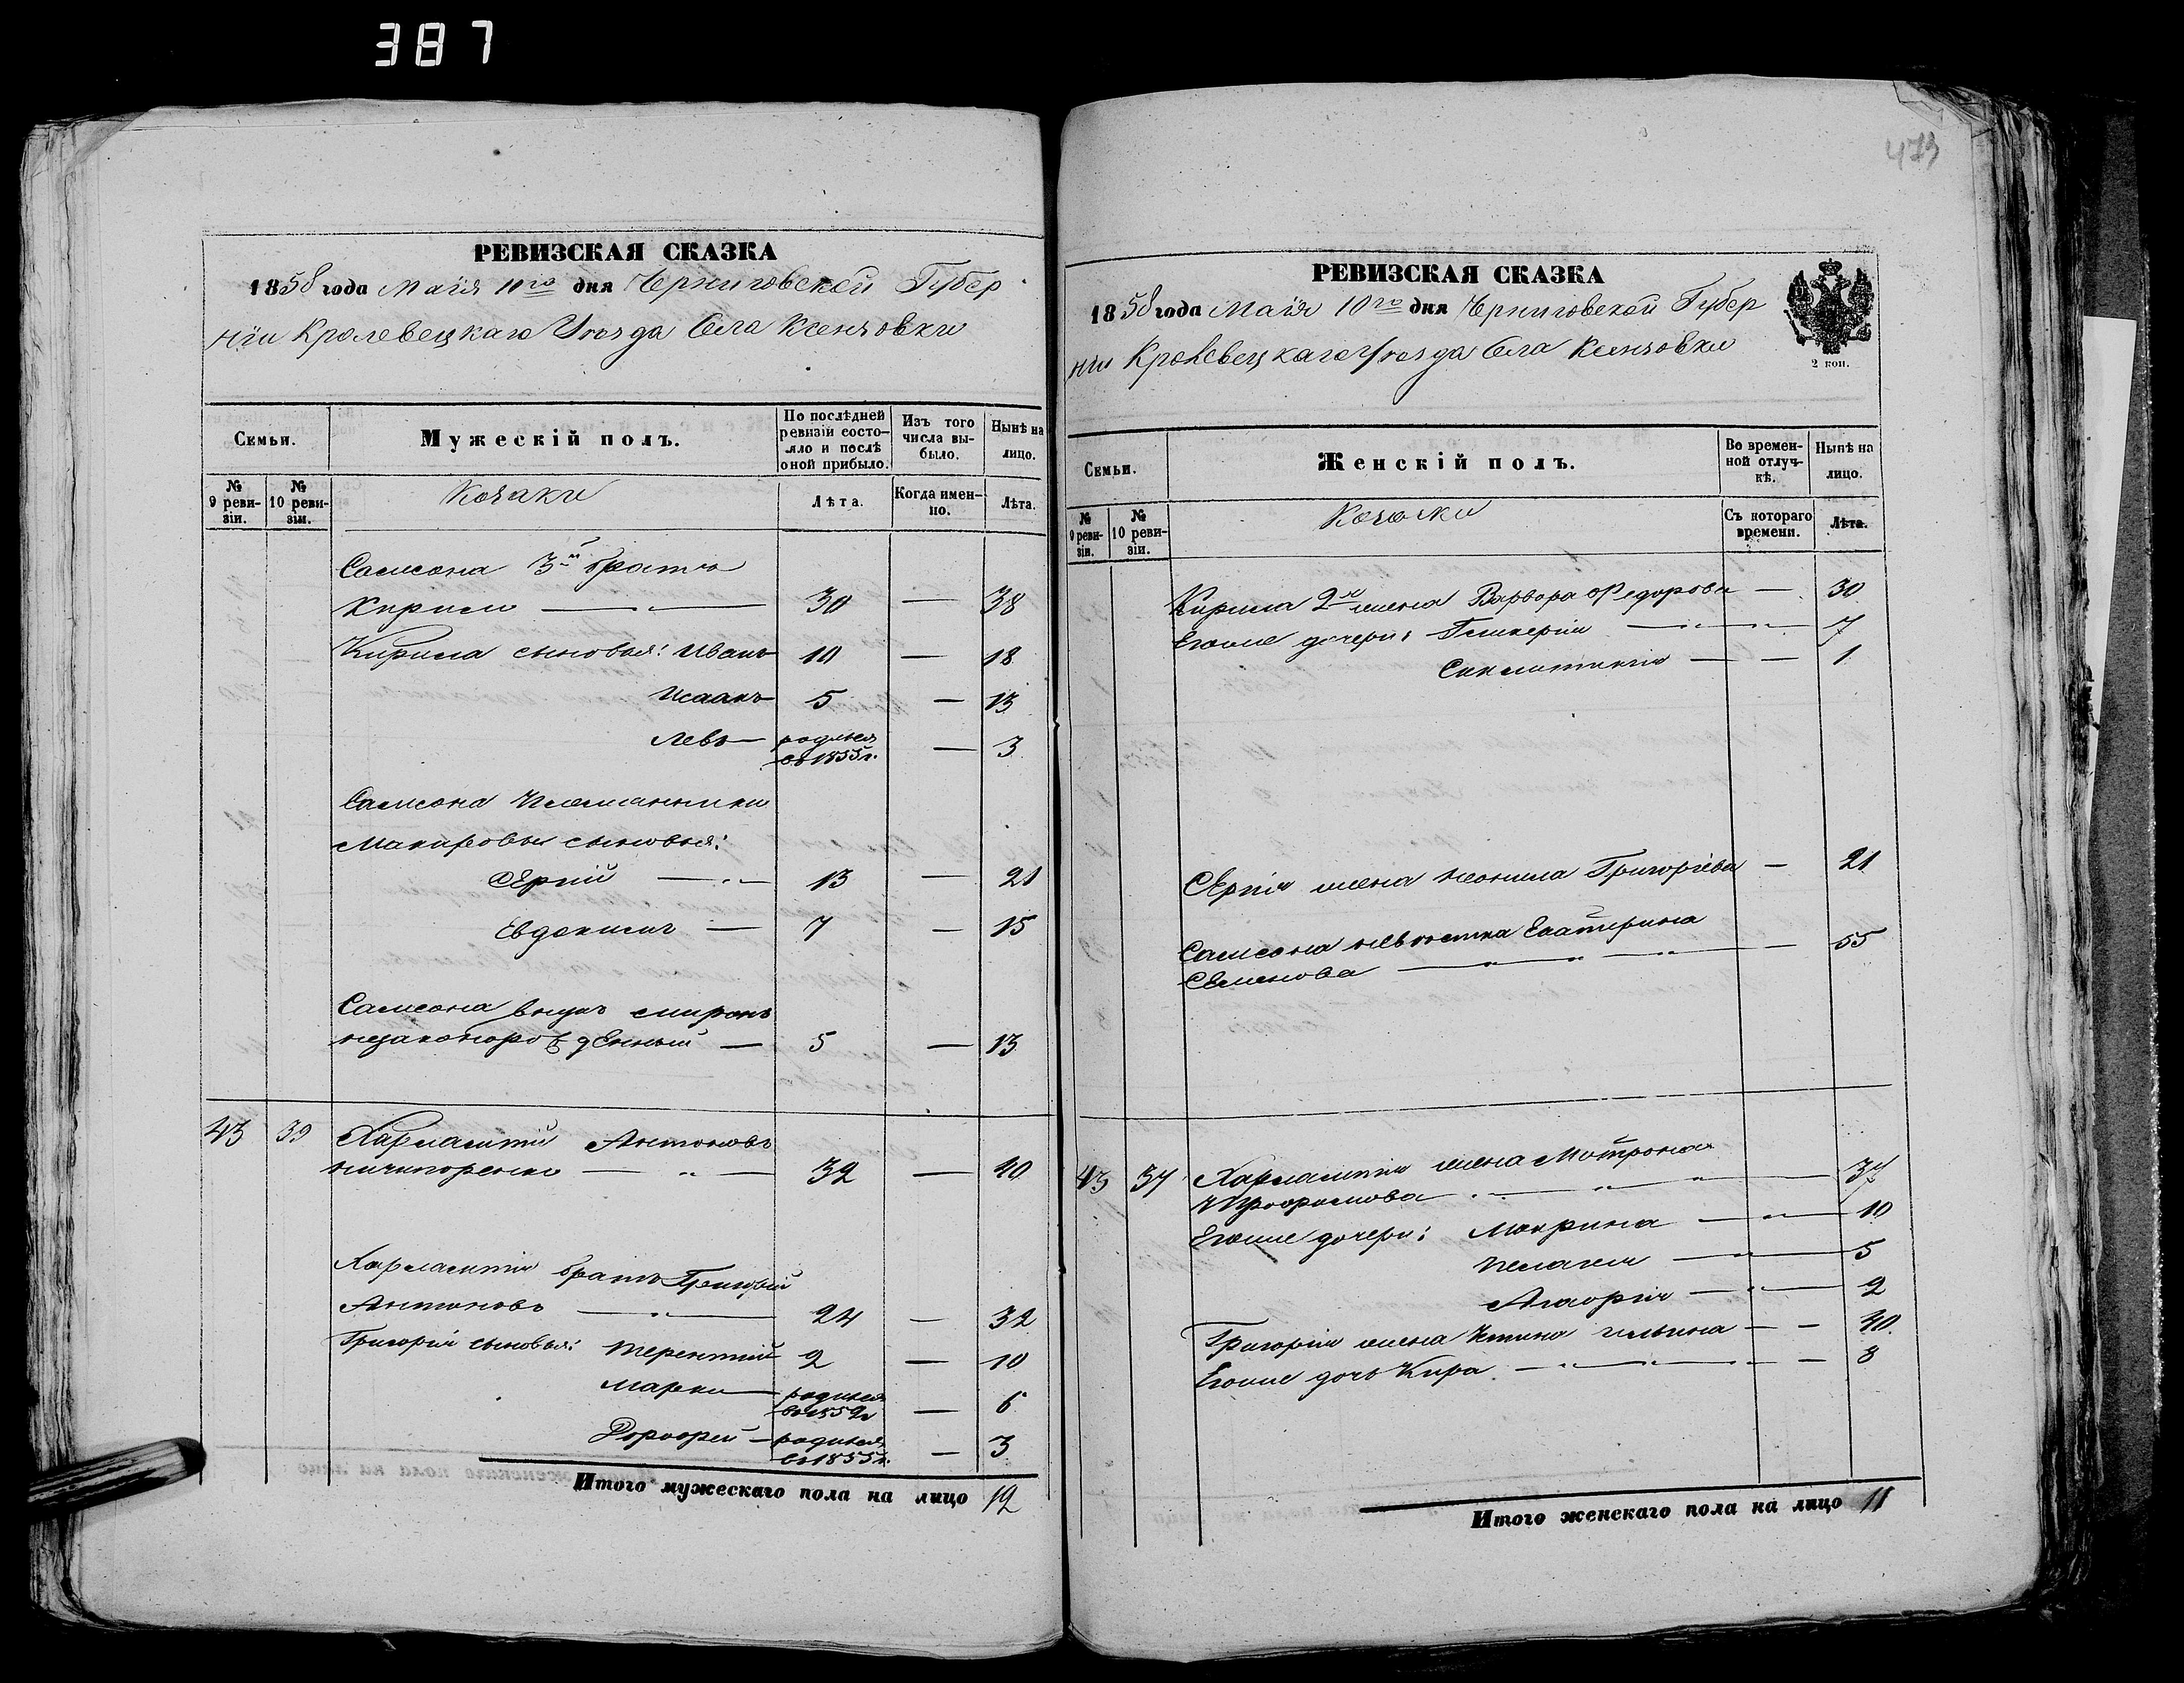 387
473
РЕВИЗСКАЯ СКАЗКА
1858 года Маія 10го дня Черниговской Губер
ніи Кролевецкаго Уезда Села Ксензовки
Семьи.
Мужескій полъ.
По послѣдней ревизіи состо-
яло и послѣ оной прибыло.
Изъ того числа вы-
было.
Нынѣ на лицо.
№ 9 реви-
зіи.
№ 10 реви-
зіи.
Козаки
Лѣта.
Когда имен-
но.
Лѣта.
Самсона 3й братъ
Кирило — 30 — 38
Кирила сыновья: Иванъ 10 — 18
Исаакъ 5 — 13
Левъ — родился
въ 1855 г. — 3
Самсона племянники
Макаровы сыновья:
Сергій — 13 — 21
Евдокимъ — 7 — 15
Самсона внукъ Миронъ
незаконорожденный — 5 — 13
43 39 Харлампій Антоновъ
Ничипоренко — 32 — 40
Харлампія братъ Григорій
Антоновъ — 24 — 32
Григорія сыновья: Терентій 2 — 10
Марко — родился
въ 1852 г — 6
Дорофей — родился
въ 1855 г. — 3
Итого мужескаго пола на лицо 12
РЕВИЗСКАЯ СКАЗКА
1858 года Маія 10го дня Черниговской Губер
ніи Кролевецкаго Уезда Села Ксензовки
2 коп.
Семьи.
Женскій полъ.
Во времен-
ной отлуч-
кѣ.
Нынѣ на лицо.
№ 9 реви-
зіи.
№ 10 реви-
зіи.
Козачки
Съ котораго времени.
Лѣта.
Кирила 2я жена Варвора Федорова — 30
Егоже дочери: Гликерія — 7
Синклитикія — 1
Сергія жена Неонила Григоріева — 21
Самсона невѣстка Екатерина
Семенова — 55
43 37 Харлампія жена Мотрона
Трофимова — 37
Егоже дочери: Макрина — 10
Пелагея — 5
Агафія — 2
Григорія жена Устина Ильина — 40
Егоже дочь Кира — 8
Итого женскаго пола на лицо 11